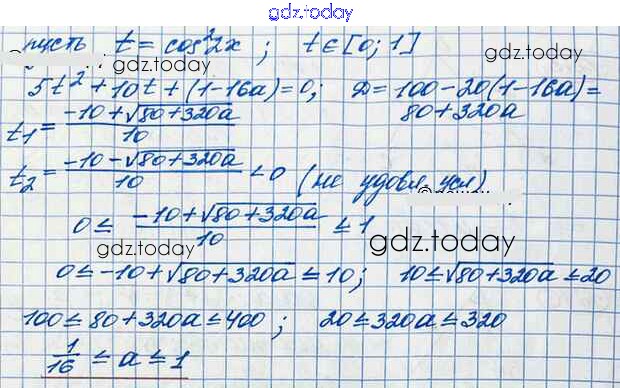 gdz.today
пусть t = cos²2x ; t ∈ [0; 1]
gdz.today
gdz.today
5t² + 10t + (1-16a) = 0; D = 100 - 20(1-16a) =
80 + 320a
t₁ = (-10 + √(80+320a))/10
t₂ = (-10 - √(80+320a))/10 < 0 (не удовл. усл)
0 ≤ (-10 + √(80+320a))/10 ≤ 1
gdz.today
gdz.today
0 ≤ -10 + √(80+320a) ≤ 10; 10 ≤ √(80+320a) ≤ 20
100 ≤ 80 + 320a ≤ 400 ; 20 ≤ 320a ≤ 320
1/16 ≤ a ≤ 1